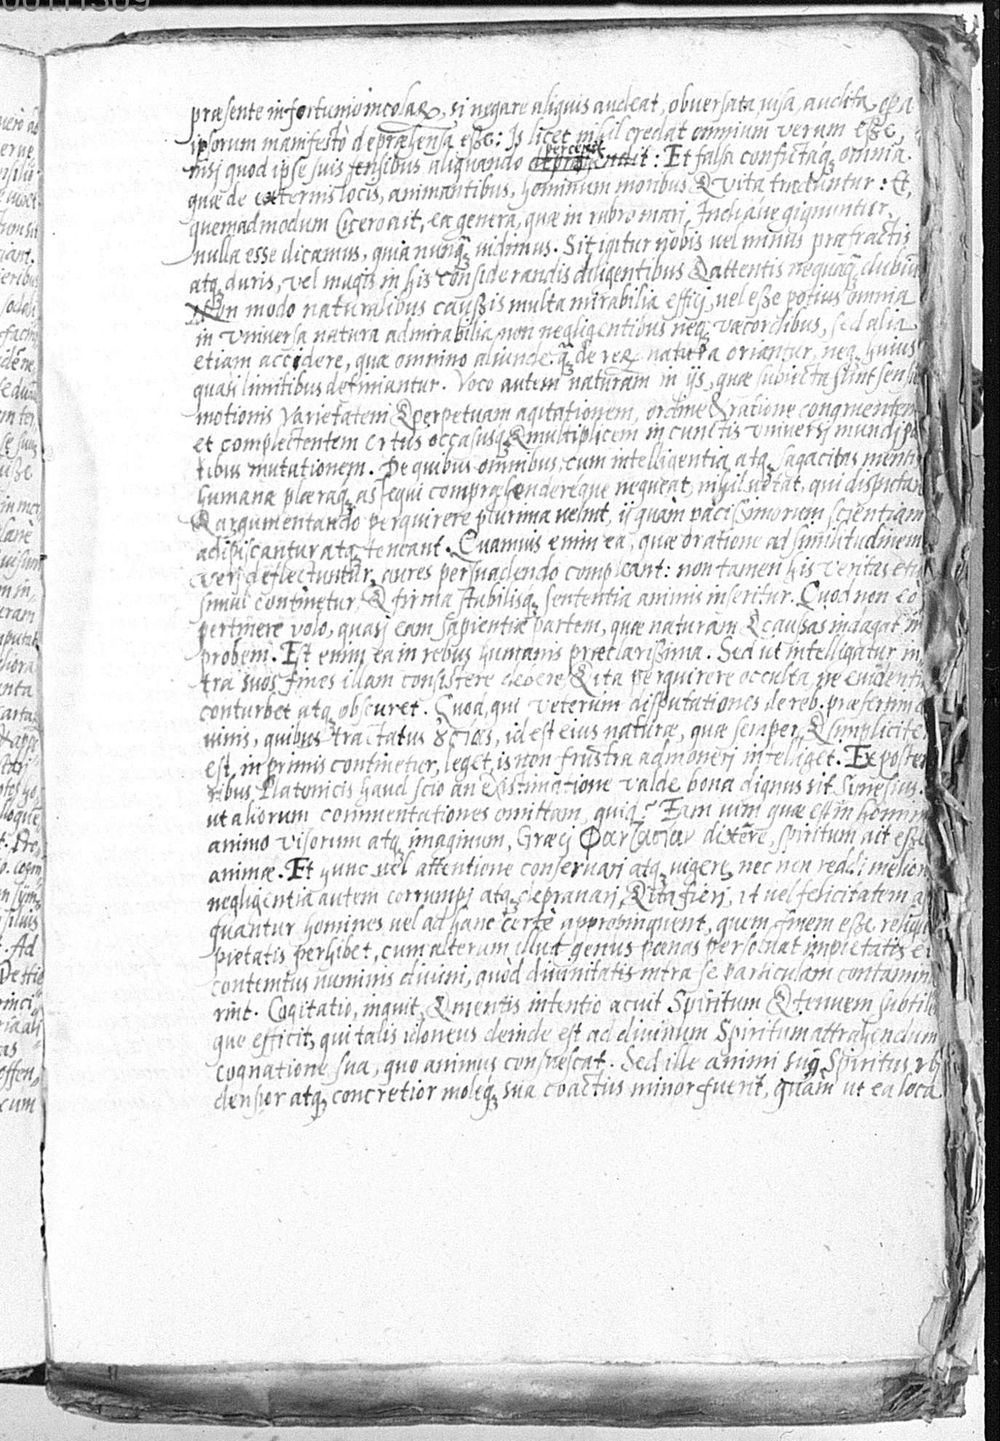 præsente infortunio incolaꝝ, si negare aliquis audeat, obversata visa, audita
ipsorum manifestò depræhensa esse: Is licet nihil credat omnium verum esse,
nisi quod ipse suis sensibus aliquando percepit: Et falsa confictaq; omnia
quæ de externis locis, animantibus, hominum moribus & vita traduntur: Et,
quemadmodum Cicero ait, ea genera, quæ in rubro mari, Indiáve gignuntur,
nulla esse dicamus, quia nunq; vidimus. Sit igitur nobis vel minus præfractis
atq; duris, vel magis in his considerandis diligentibus & attentis nequaq; dubium
Non modo naturalibus caussis multa mirabilia effici, vel esse potius omnia
in universa natura admirabilia non negligentibus neq; væcordibus, sed alia
etiam accidere, quæ omnino aliunde q̃ de reꝝ natura oriantur, neq; huius
quasi limitibus definiantur. Voco autem naturam in ijs, quæ subiecta sunt sensibus
motionis varietatem & perpetuam agitationem, ordine & ratione congruentem
et complectentem ortus occasusq; & multiplicem in cunctis universi mundi par
tibus mutationem. De quibus omnibus, cum intelligentia atq; sagacitas mentis
humanæ pleraq; assequi compræhendereque nequeat, nihil vetat, qui disputan
& argumentando perquirere plurima velint, ij quàm paucissimorum scientiam
adipiscantur atq; teneant. Quamvis enim ea, quæ oratione ad similitudinem
veri deflectuntur, aures persuadendo compleant: non tamen his veritas etia
simul continetur, & firma stabilisq; sententia animis inseritur. Quod non eo
pertinere volo, quasi eam sapientiæ partem, quæ naturam & caussas indagat im
probem. Est enim ea in rebus humanis præclarissima. Sed ut intelligatur in
tra suos fines illam consistere debere, & ita perquirere occulta, ne evidentia
conturbet atq; obscuret. Quod, qui veterum disputationes de reb. præsertim
vinis, quibus tractatus οὐσίας, id est eius naturæ, quæ semper & simpliciter
est, in primis continetur, leget, is non frustra admoneri intelliget. Ex posterio
ribus Platonicis haud scio an existimatione valde bona dignus sit Sinesius.
ut aliorum commentationes omittam, quiq; Eam vim quæ est in hominis
animo visorum atq; imaginum, Græci φαντασίαν dixere, spiritum ait esse
animæ. Et hunc vel attentione conservari atq; vigere, nec non reddi meliorem
negligentia autem corrumpi atq; depravari, & ita fieri, ut vel felicitatem a
quantur homines vel ad hanc certè appropinquent, quem finem esse religio
pietatis perhibet, cum alterum illud genus poenas persolvat impietatis et
contemtus numinis divini, quòd divinitatis intra se particulam contamina
rint. Cogitatio, inquit, & mentis intentio acuit Spiritum & tenuem subtilem
que efficit, qui talis idoneus deinde est ad divinum Spiritum attrahendum
cognatione sua, quo animus consuescat. Sed ille animi suq; Spiritus, ubi
densior atq; concretior moleq; sua coactus minor fuerit, quàm ut ea loca